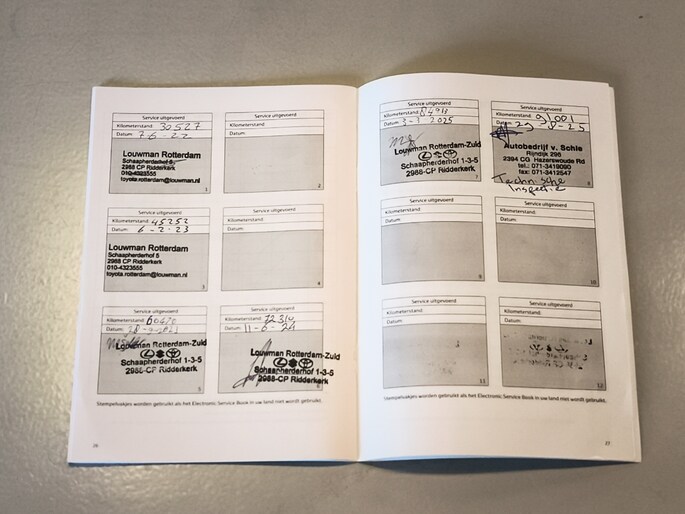 Service uitgevoerd
Kilometerstand: 30527
Datum: 7-6-22
Louwman Rotterdam
Schaapherderhof 5
2988 CP Ridderkerk
010-4323555
toyota.rotterdam@louwman.nl
1
Service uitgevoerd
Kilometerstand:
Datum:
2
Service uitgevoerd
Kilometerstand: 45252
Datum: 6-2-23
Louwman Rotterdam
Schaapherderhof 5
2988 CP Ridderkerk
010-4323555
toyota.rotterdam@louwman.nl
3
Service uitgevoerd
Kilometerstand:
Datum:
4
Service uitgevoerd
Kilometerstand: 60470
Datum:
Louwman Rotterdam-Zuid
Schaapherderhof 1-3-5
2988-CP Ridderkerk
5
Service uitgevoerd
Kilometerstand: 72310
Datum: 11-6-24
Louwman Rotterdam-Zuid
Schaapherderhof 1-3-5
2988-CP Ridderkerk
6
Stempelvakjes worden gebruikt als het Electronic Service Book in uw land niet wordt gebruikt.
26
Service uitgevoerd
Kilometerstand: 84913
Datum: 3-1 2025
Louwman Rotterdam-Zuid
Schaapherderhof 1-3-5
2988-CP Ridderkerk
7
Service uitgevoerd
Kilometerstand: 91001
Datum: 29 8-25
Autobedrijf v. Schie
Rijndijk 295
2394 CG Hazerswoude Rd
tel.: 071-3419090
fax: 071-3412547
Technische
Inspectie
8
Service uitgevoerd
Kilometerstand:
Datum:
9
Service uitgevoerd
Kilometerstand:
Datum:
10
Service uitgevoerd
Kilometerstand:
Datum:
11
Service uitgevoerd
Kilometerstand:
Datum:
12
Stempelvakjes worden gebruikt als het Electronic Service Book in uw land niet wordt gebruikt.
27